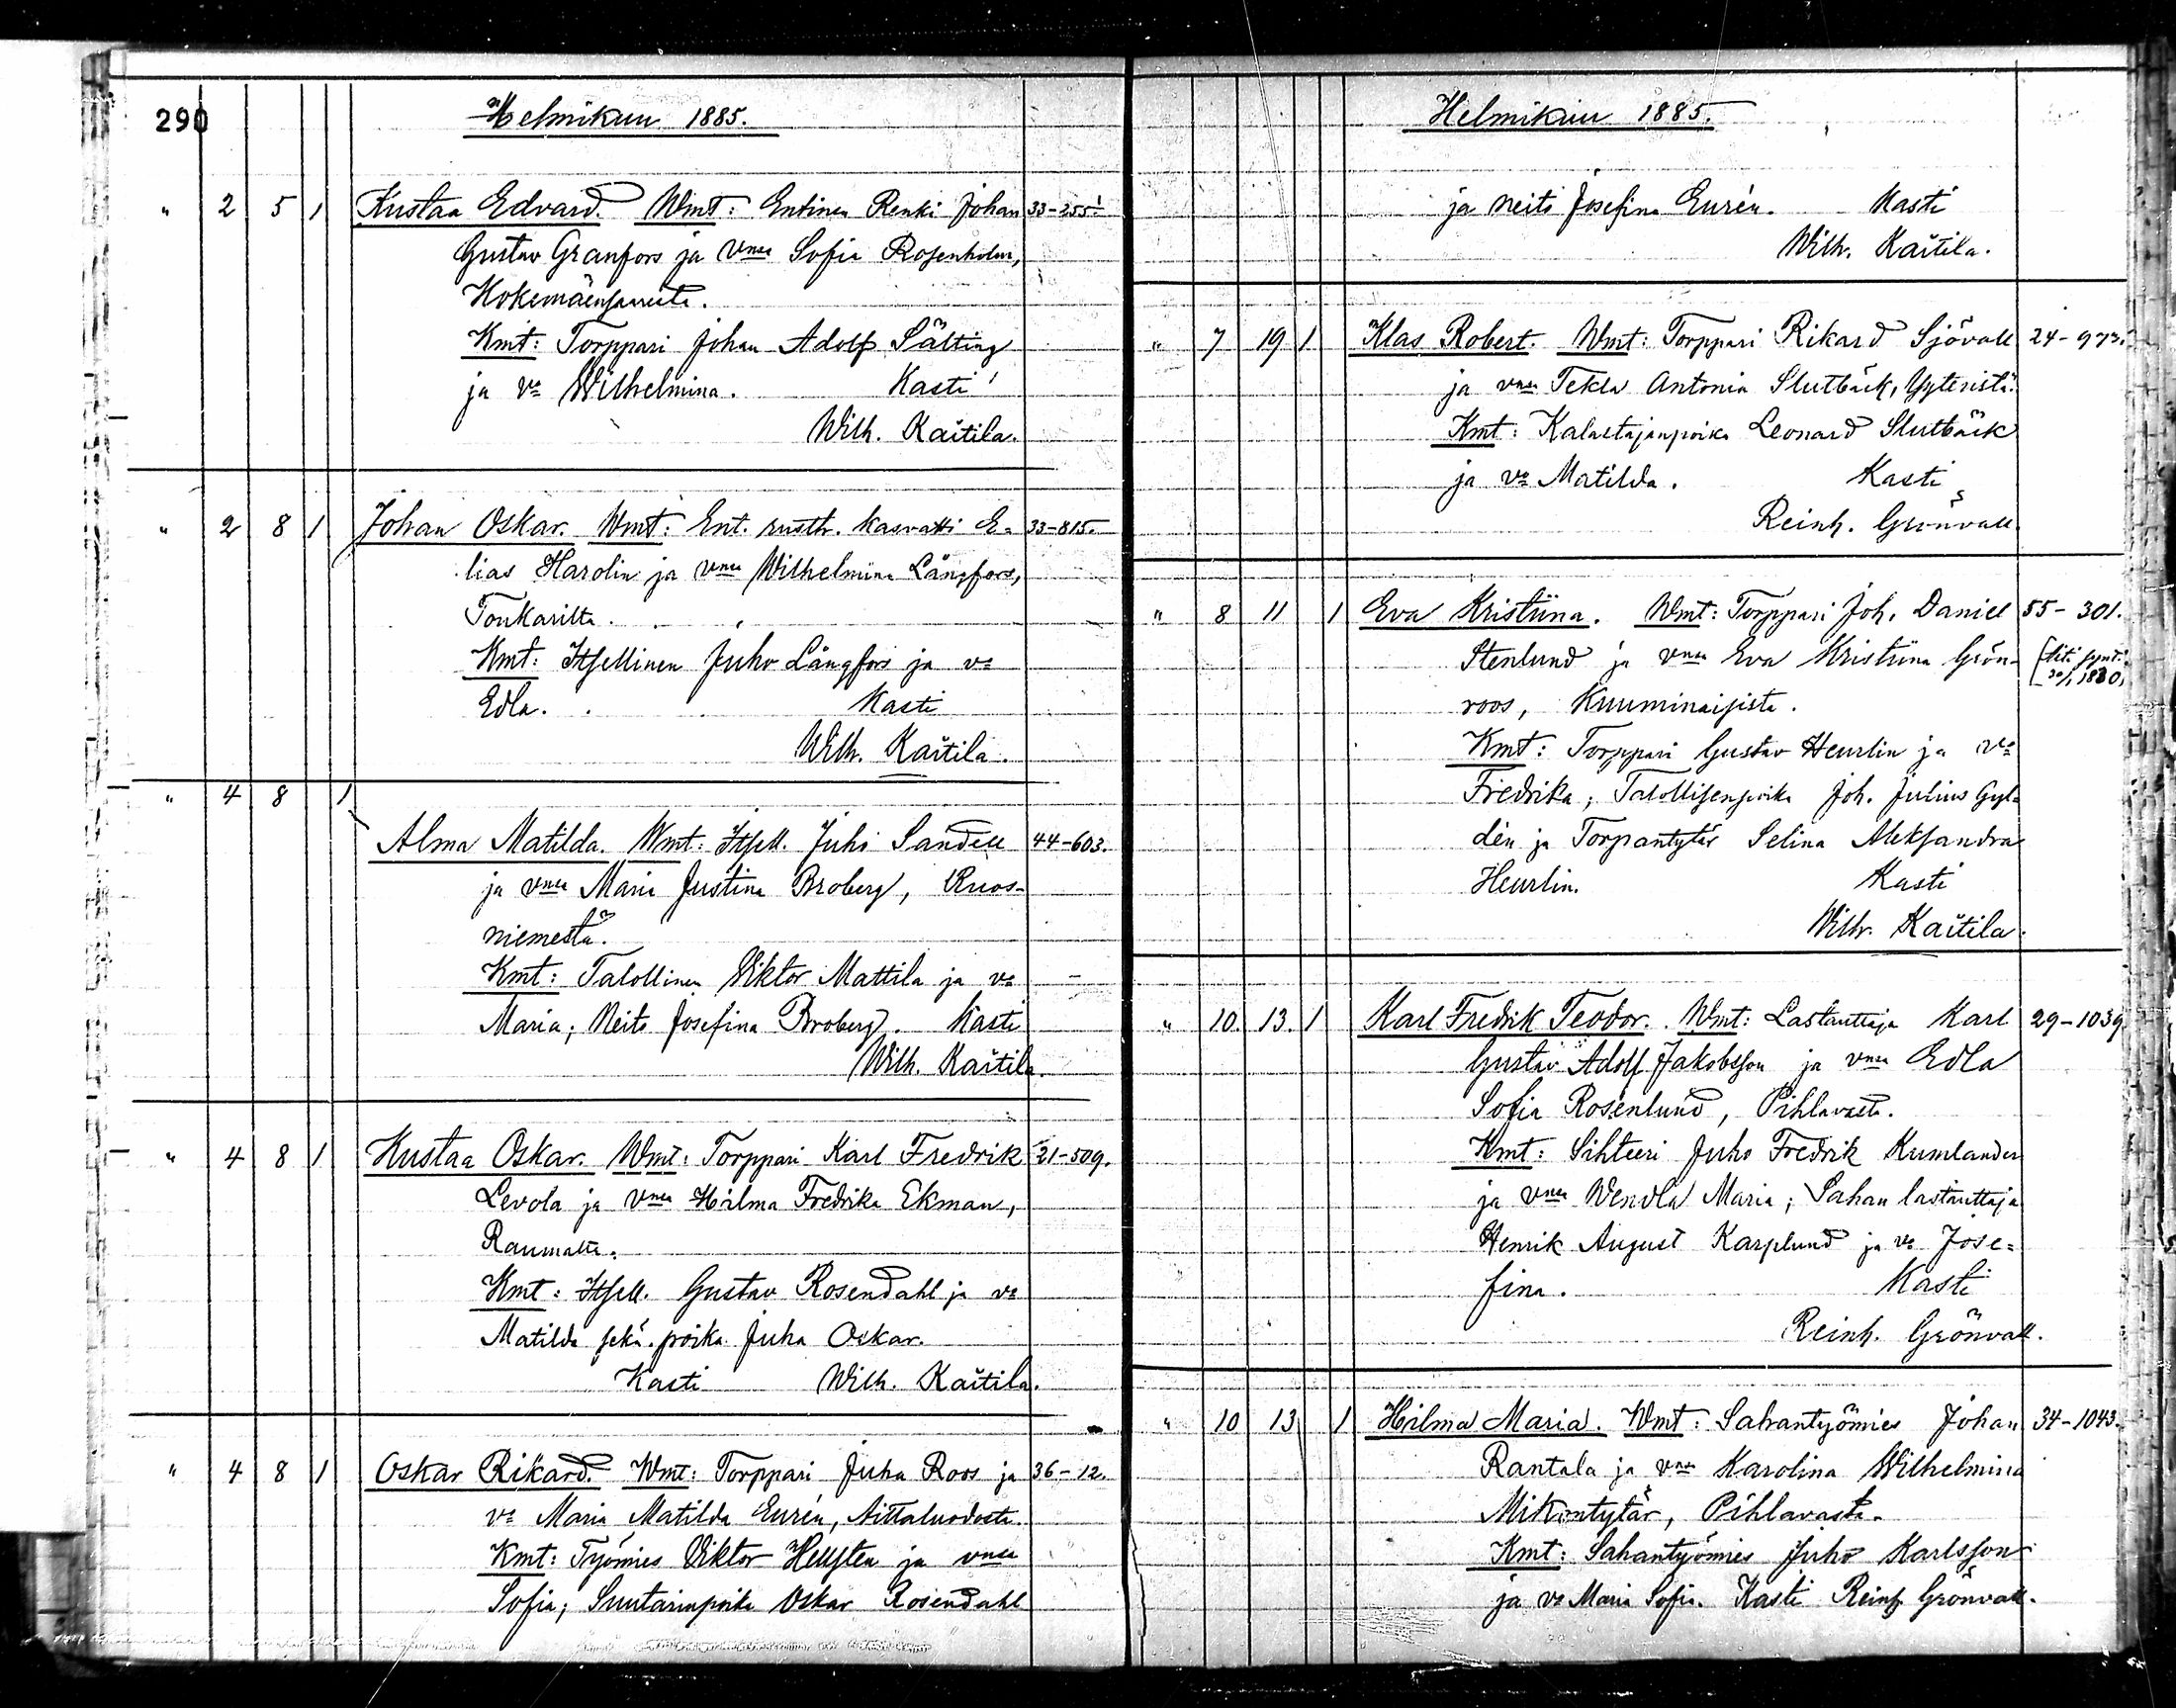 290
Helmikuu 1885.
" 2 5 1 Kustaa Edvard. Wmt: Entinen Renki Johan 33-255.
Gustav Granfors ja vmsa Sofia Rosenholm,
Kokemäensaaresta.
Kmt: Torppari Johan Adolf Sälting
ja va Wilhelmina. Kasti
Wilh. Kaitila.
" 2 8 1 Johan Oskar. Wmt: Ent. rusth. kasvatti E= 33-815.
lias Harolin ja vmsa Wilhelmina Långfors,
Toukarilta.
Kmt: Itsellinen Juho Långfors ja va
Edla. Kasti
Wilh. Kaitila.
" 4 8 1
Alma Matilda. Wmt: Itsell. Juho Sandell 44-603.
ja vmsa Maria Justina Broberg, Ruos-
niemestä.
Kmt: Talollinen Viktor Mattila ja va
Maria; Neito Josefina Broberg. Kasti
Wilh. Kaitila.
" 4 8 1 Kustaa Oskar. Wmt: Torppari Karl Fredrik 21-509.
Levola ja vmsa Hilma Fredrika Ekman,
Raumalta.
Kmt: Itsell. Gustav Rosendahl ja va
Matilda sekä poika Juha Oskar.
Kasti Wilh. Kaitila.
" 4 8 1 Oskar Rikard. Wmt: Torppari Juha Roos ja 36-12.
va Maria Matilda Eurén, Aittaluodosta.
Kmt: Työmies Viktor Hellsten ja vmsa
Sofia; Suutarinpoika Oskar Rosendahl
Helmikuu 1885.
ja neito Josefina Eurén. Kasti
Wilh. Kaitila.
" 7 19 1 Klas Robert. Wmt: Torppari Rikard Sjövall 24-973.
ja vmsa Tekla Antonia Slutbäck, Yyteristä.
Kmt: Kalastajanpoika Leonard Slutbäck
ja va Matilda. Kasti
Reinh. Grönvall.
" 8 11 1 Eva Kristiina. Wmt: Torppari Joh. Daniel 55-301.
Stenlund ja vmsa Eva Kristiina Grön-
roos, Kuuminaisista.
Kmt: Torppari Gustav Heurlin ja va
Fredrika; Talollisenpoika Joh. Julius Gyl=
dén ja Torpantytär Selina Aleksandra
Heurlin. Kasti
Wilh. Kaitila.
" 10. 13. 1 Karl Fredrik Teodor. Wmt: Lastauttaja Karl 29-1039
Gustav Adolf Jakobsson ja vmsa Edla
Sofia Rosenlund, Pihlavasta.
Kmt: Sihteeri Juho Fredrik Kumlander
ja vmsa Wendla Maria; Sahan lastauttaja
Henrik August Karplund ja va Jose=
fina. Kasti
Reinh. Grönvall.
" 10 13 1 Hilma Maria. Wmt: Sahantyömies Johan 34-1043.
Rantala ja vmsa Karolina Wilhelmina
Mikontytär, Pihlavasta.
Kmt: Sahantyömies Juho Karlsson
ja va Maria Sofia. Kasti Reinh Grönvall.